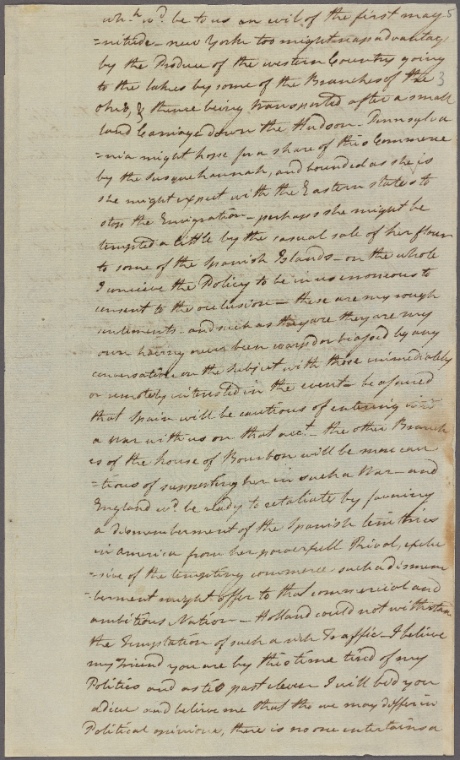 wh.h w.d be to us an evil of the first mag
=nitude – new York too might reap advantages
by the Produce of the western Country going
to the lakes by some of the Branches of the
Ohio, & thence being transported after a small
land Carriage down the Hudson – Pennsylva
=nia might hope for a share of this Commerce
by the Susquehannah, and bounded as she is
she might expect with the Eastern states to
stop the Emigration – perhaps she might be
tempted a little by the casual sale of her flour
to some of the Spanish Islands – on the whole
I conceive the Policy to be in us erroneous to
consent to the occlusion – these are my rough
sentiments – and such as they are they are my
own having never been warped or biassed by any
conversation on the Subject with those immediately
or remotely interested in the event – be assured
that Spain will be cautious of entering into
a War with us on that acc.t – the other Branch
es of the house of Bourbon will be more cau
=tious of supporting her in such a War – and
England w.d be ready to retaliate by favoring
a dismemberment of the Spanish territories
in america from her powerfull Rival, exclu
=sive of the tempting commerce such a dismem
=berment might offer to that commercial and
ambitious Nation – Holland could not withstand
the Temptation of such a rich Traffic – I believe
my Friend you are by this time tired of my
Politics and as tis past eleven I will bid you
adieu and believe me that tho we may differ in
Political opinions, there is no one entertains a